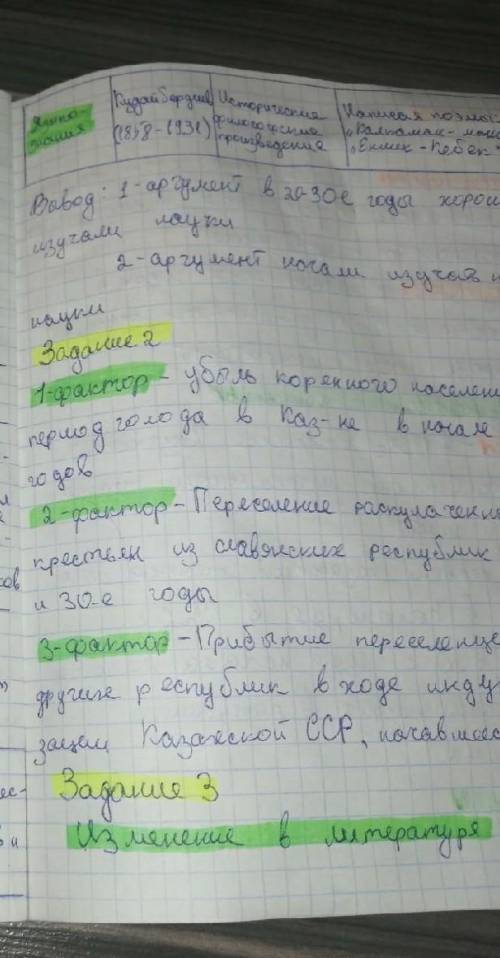 Языко-
знания
Кудайбердиев
(1858-1931)
Исторические
философские
произведения
Написал поэмы
"Калкаман-
"Енлик-Кебек"
Вывод: 1-аргумент в 20-30е годы хорош
изучали науки
2-аргумент начали изучать н
науки
Задание 2
1-фактор - убыль коренного населен
период голода в Каз-не в начале
годов
2-фактор - Переселение раскулаченн
крестьян из славянских республик
и 30-е годы
3-фактор - Прибытие переселенце
других республик в ходе инду
зации Казахской ССР, начавшеес
Задание 3
Изменение в литературе